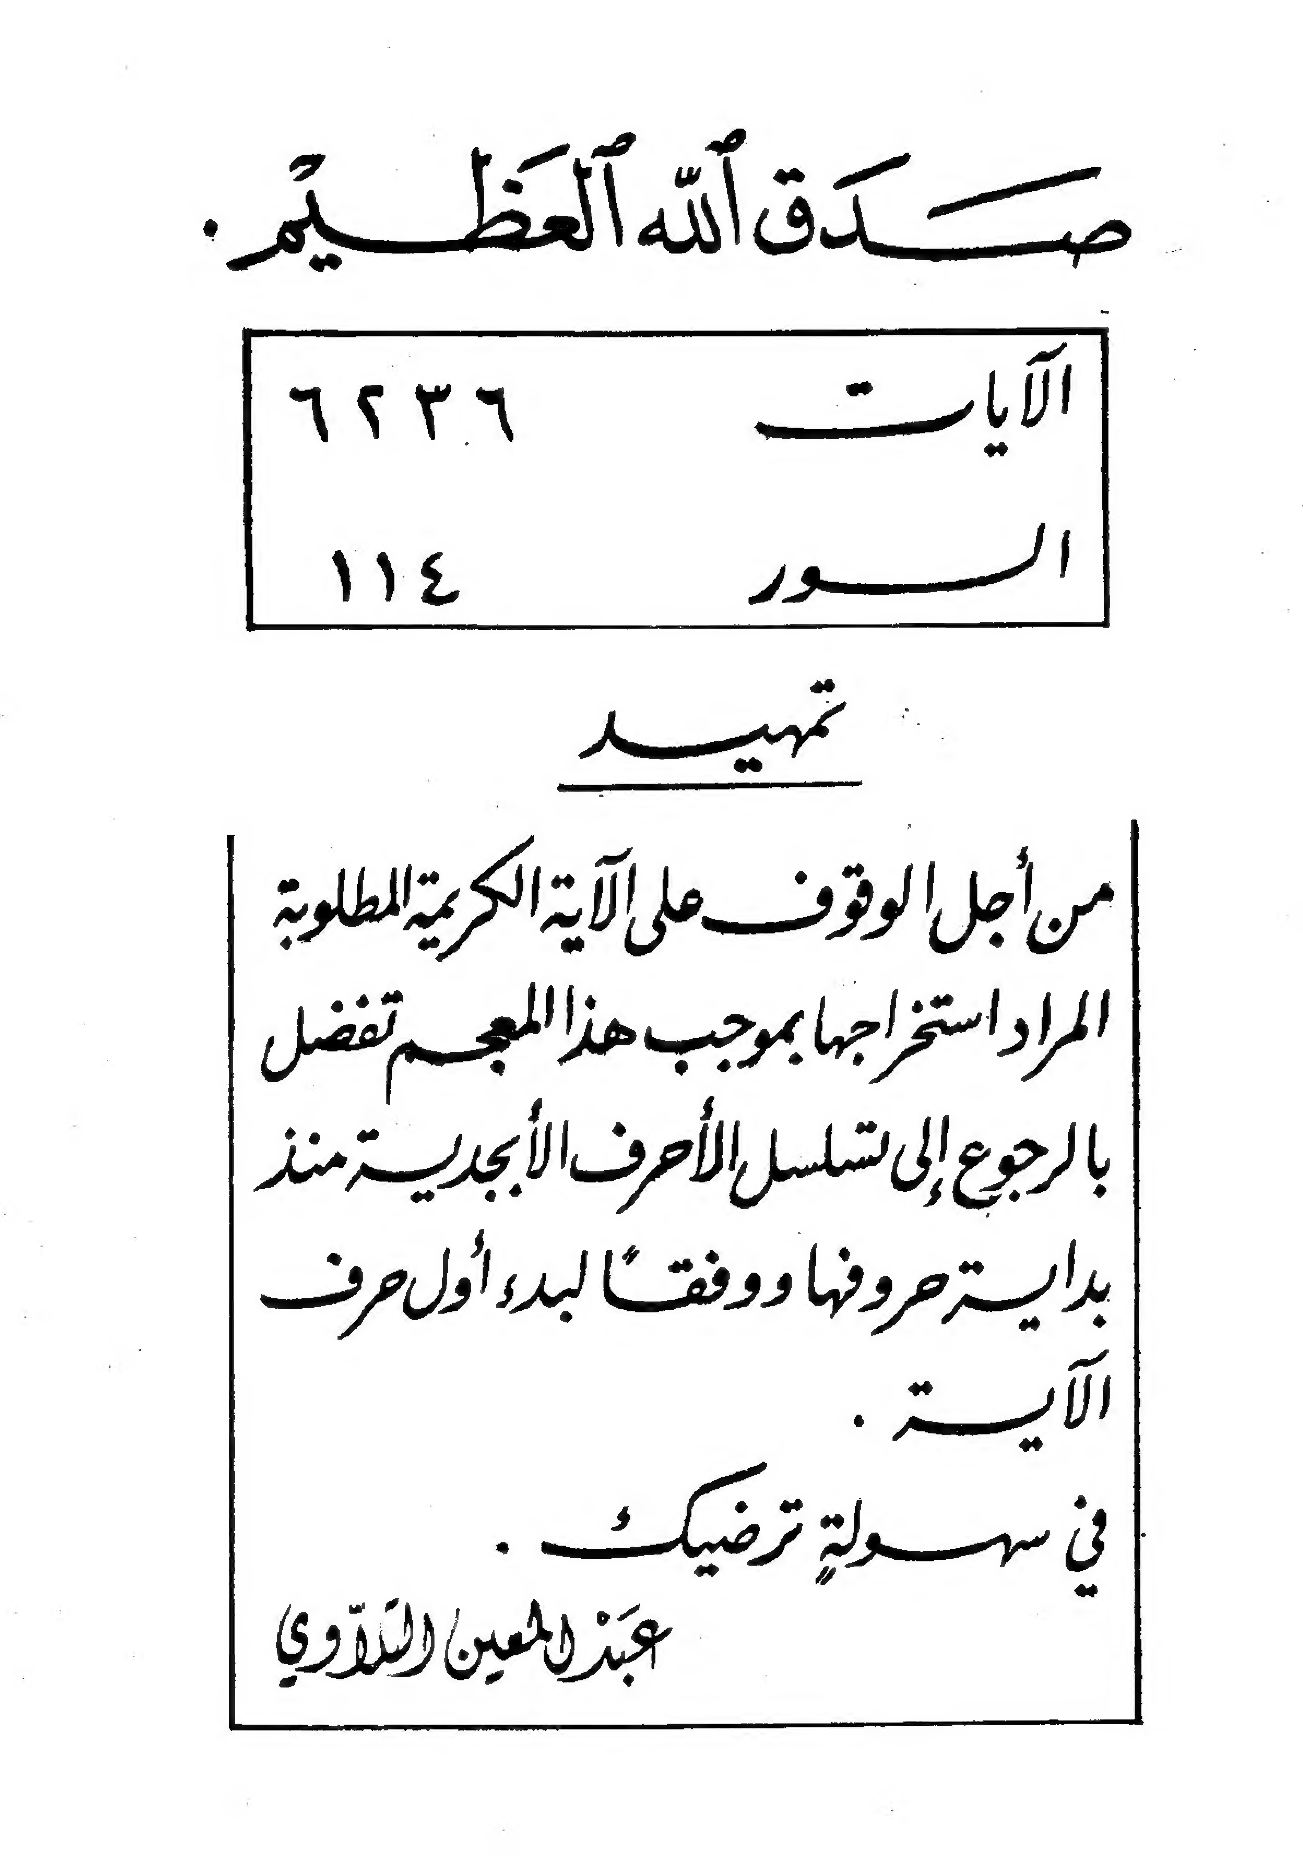 صَدَقَ ٱللّه ٱلعَظيْم .
الآيات ٦٢٣٦
السور ١١٤
تمهيد
من أجل الوقوف على الآية الكريمة المطلوبة
المراد استخراجها بموجب هذا المعجم تفضل
بالرجوع إلى تسلسل الأحرف الأبجدية منذ
بداية حروفها ووفقاً لبدء أول حرف
الآية .
في سهولةٍ ترضيك .
عَبْد المعين التلاّوي